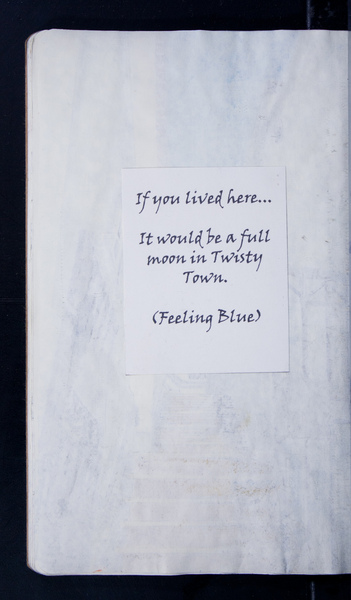 If you lived here...
It would be a full
moon in Twisty
Town.
(Feeling Blue)